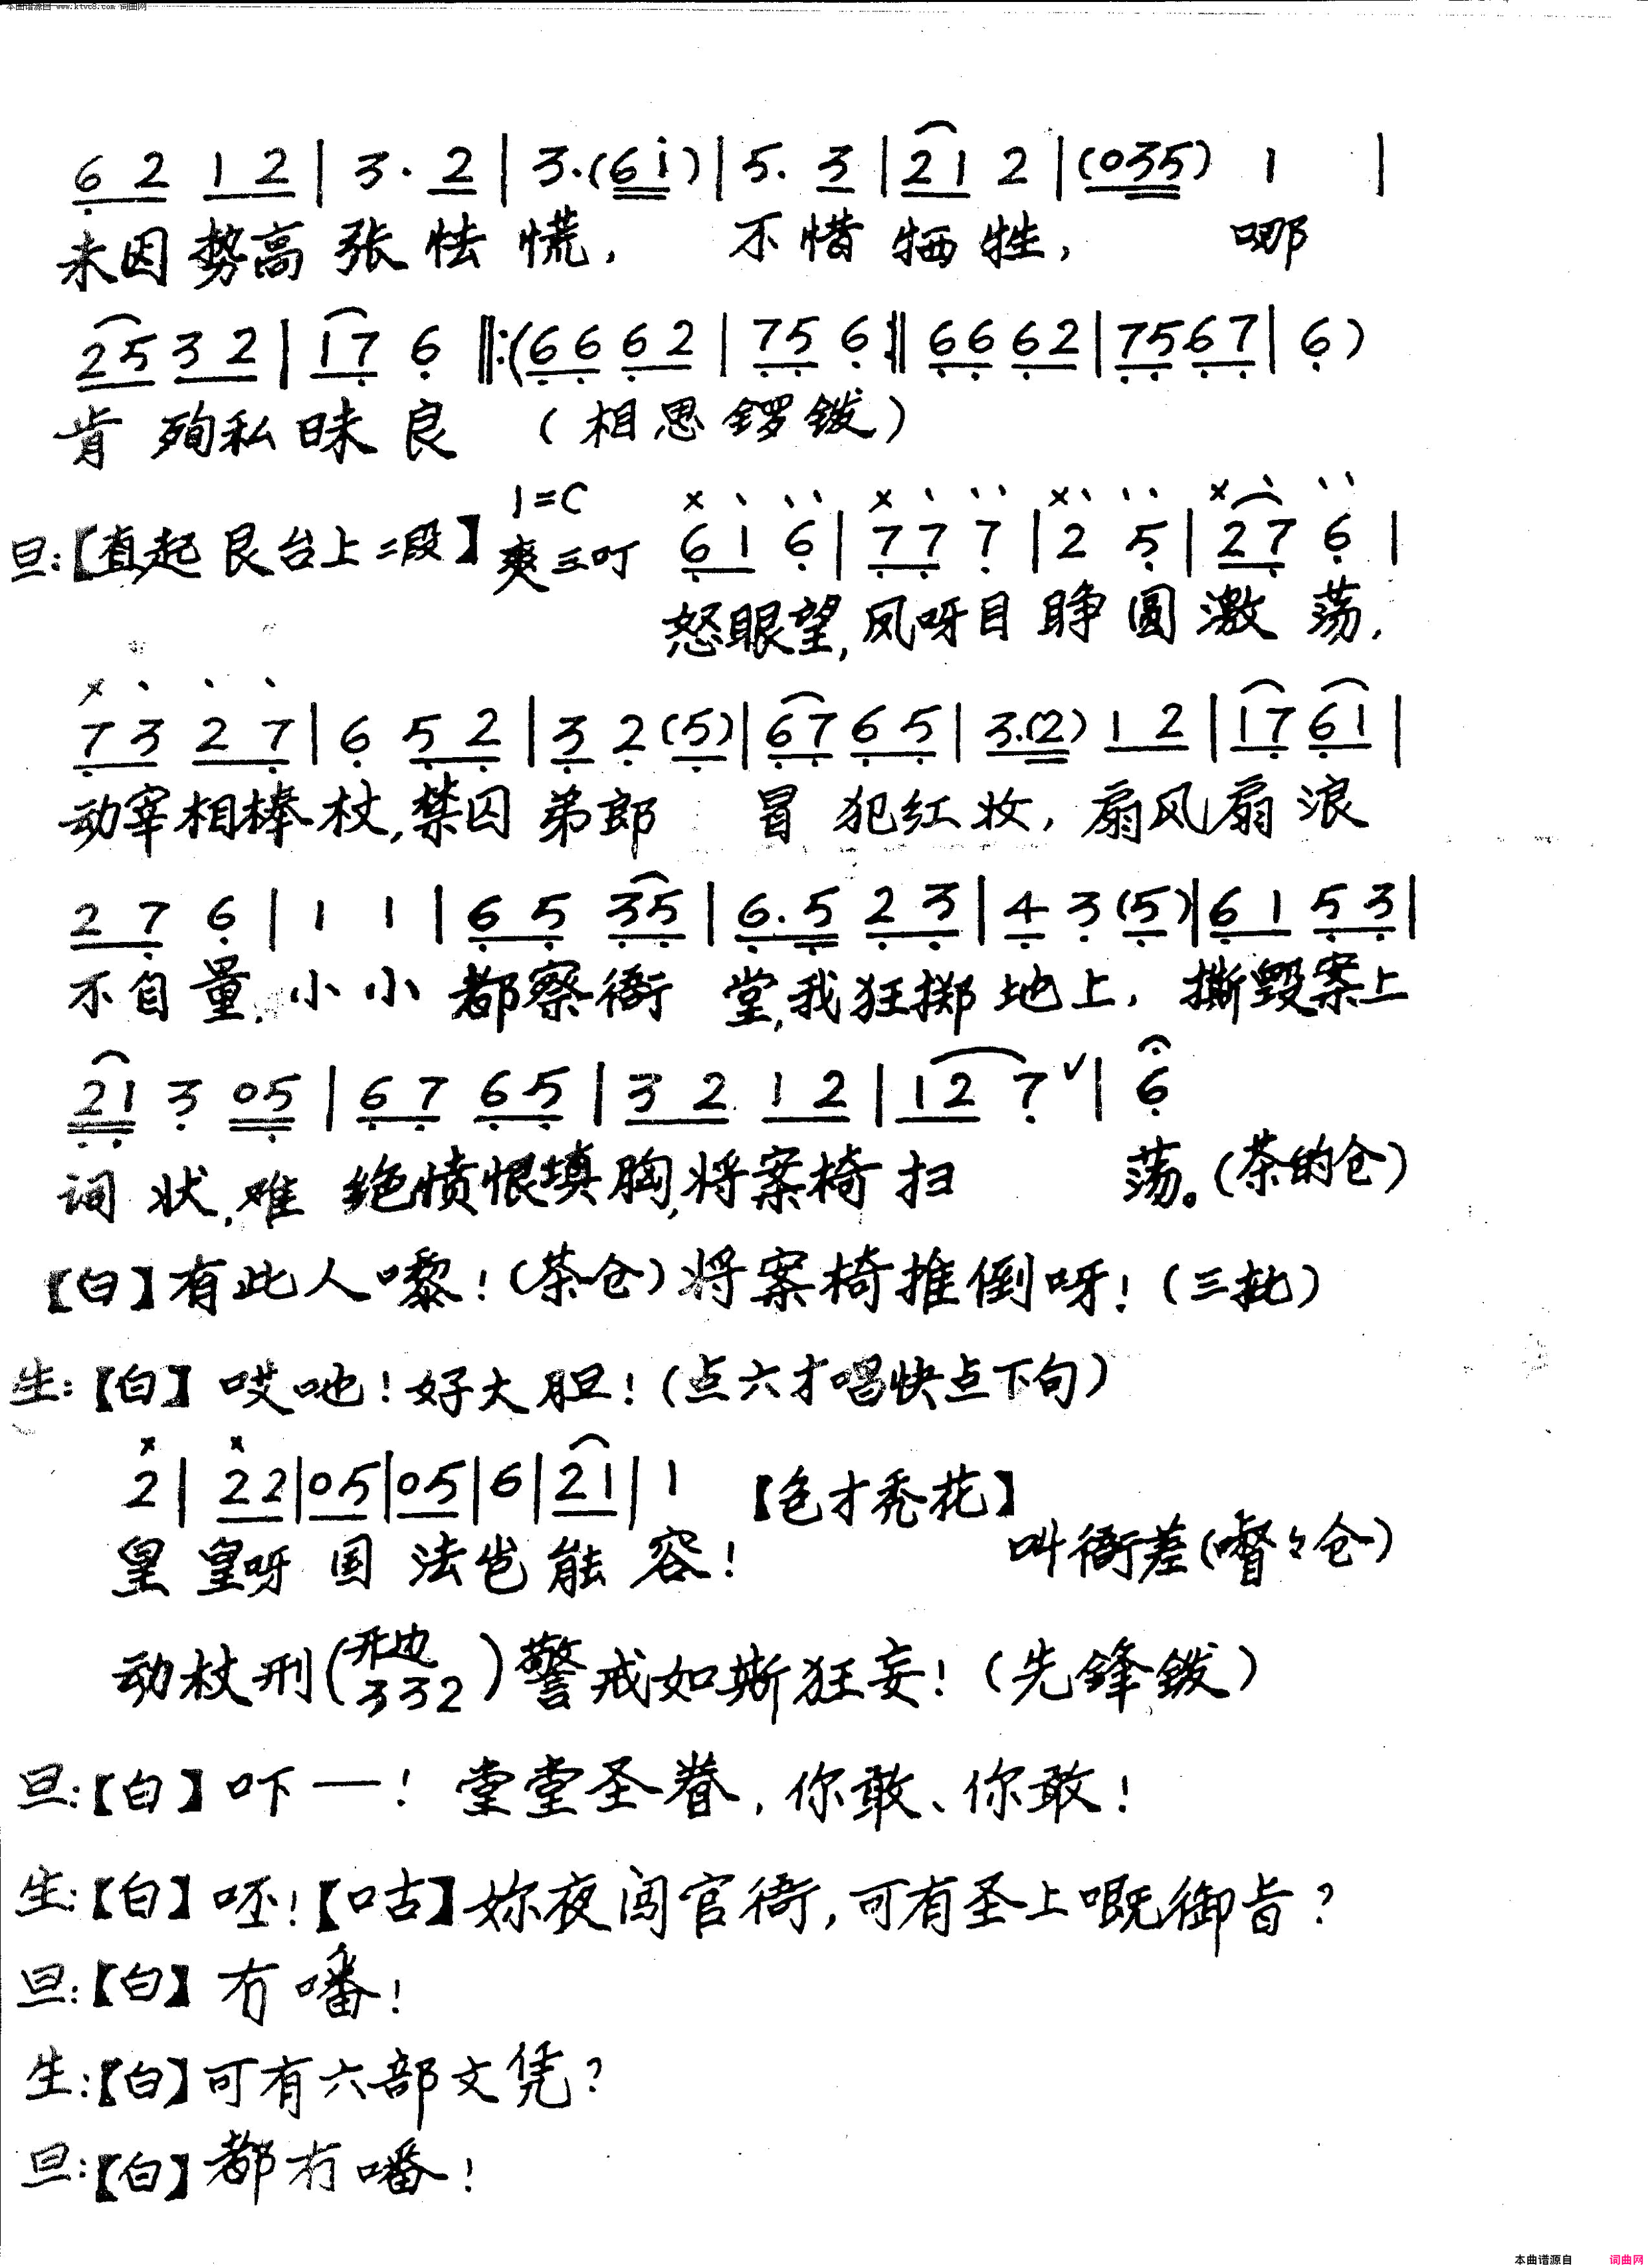 本曲谱源自 www.ktvc8.com 词曲网
6 2 1 2 | 3 · 2 | 3·(6 i) | 5. 3 | 2 1 2 | (0 3 5) 1 |
未因势高张怯慌， 不惜牺牲， 哪
2 5 3 2 | 1 7 6 ‖:(6 6 6 2 | 7 5 6 :‖ 6 6 6 2 | 7 5 6 7 | 6)
肯殉私昧良 （相思锣钹）
旦:【直起艮台上二段】1=C 爽三叮 6 1 6 | 7 7 7 | 2 5 | 2 7 6 |
怒眼望,凤呀目睁圆激荡,
7 3 2 7 | 6 5 2 | 3 2 (5) | 6 7 6 5 | 3.(2) 1 2 | 1 7 6 1 |
动宰相棒杖,禁囚弟郎 冒犯红妆,扇风扇浪
2 7 6 | 1 1 | 6 5 3 5 | 6. 5 2 3 | 4 3 (5) | 6 1 5 3 |
不自量,小小都察衙堂,我狂掷地上,撕毁案上
2 1 3 0 5 | 6 7 6 5 | 3 2 1 2 | 1 2 7 ∨ | 6
词状,难绝愤恨填胸,将案椅扫 荡。(茶的仓)
【白】有此人嚟!(茶仓)将案椅推倒呀!(三批)
生:【白】哎吔!好大胆!(点六才唱快点下句)
2 | 2 2 | 0 5 | 0 5 | 6 | 2 1 | 1 【色才秃花】
皇皇呀国法岂能容! 叫衙差(嘟々仓)
动杖刑(开边 3 3 2)警戒如斯狂妄!(先锋钹)
旦:【白】吓一!堂堂圣眷,你敢、你敢!
生:【白】呸!【咕】妳夜闯官衙,可有圣上嘅御旨?
旦:【白】冇噃!
生:【白】可有六部文凭?
旦:【白】都冇噃!
本曲谱源自 词曲网